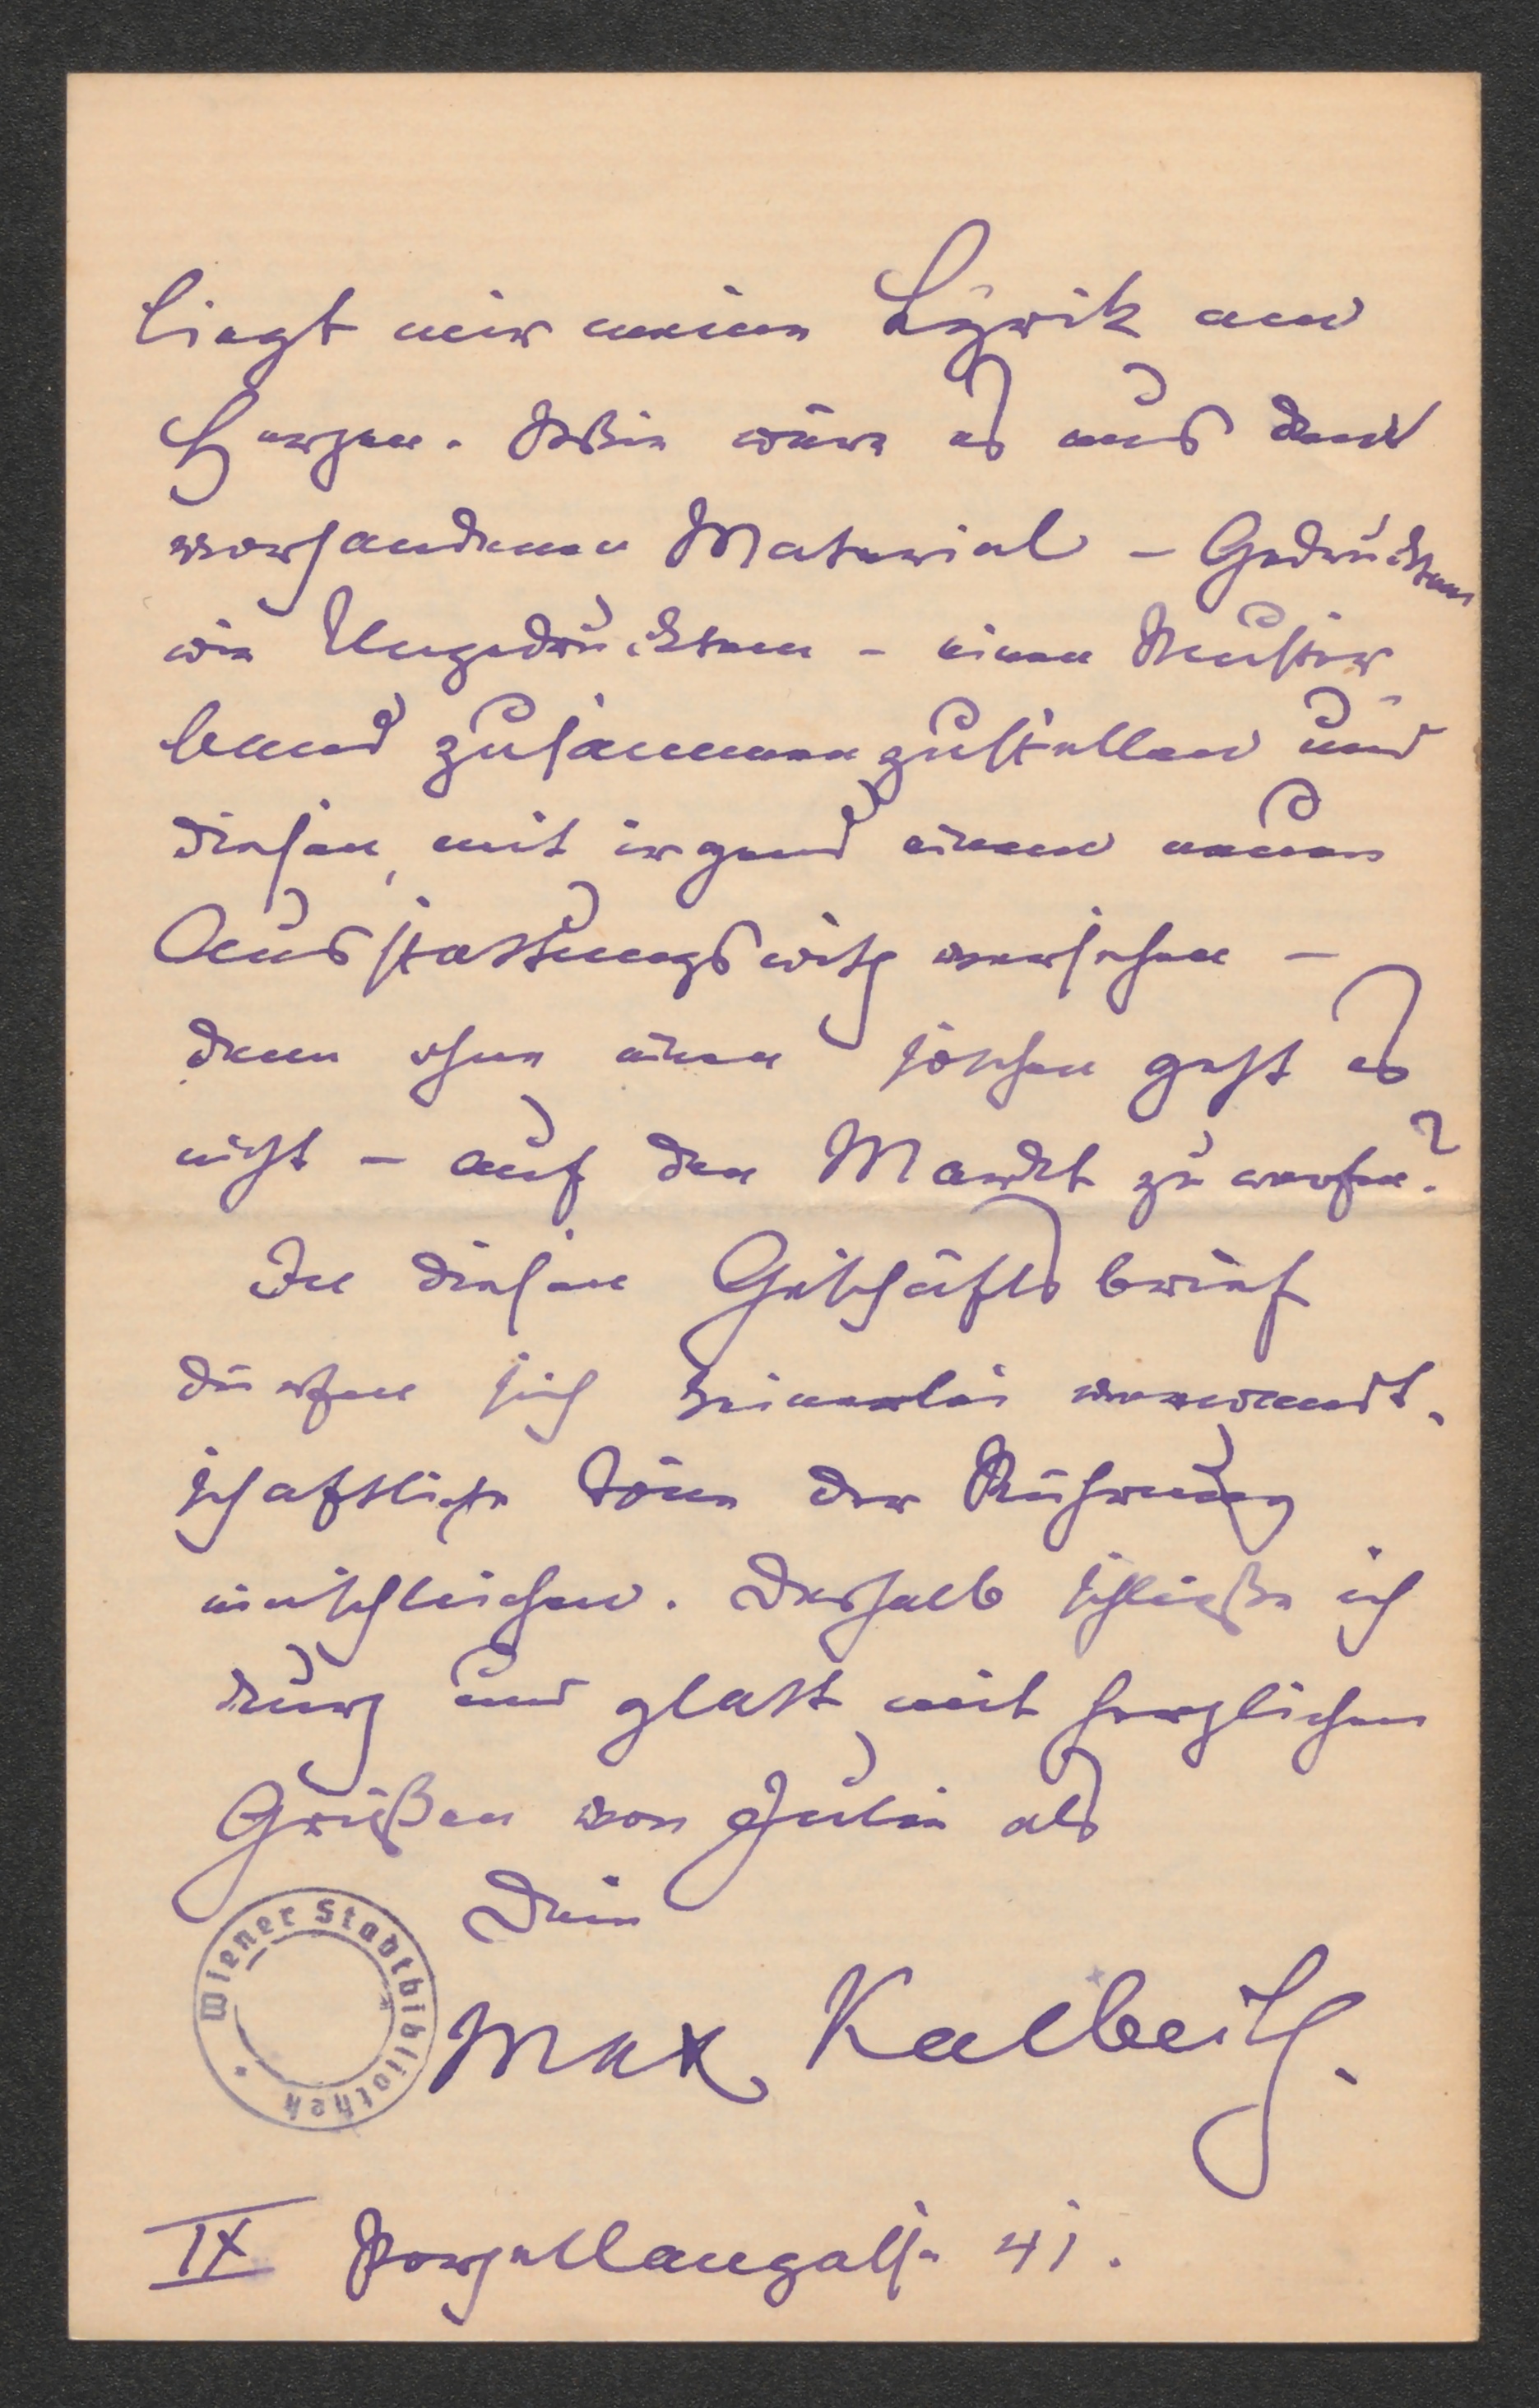 liegt mir meine Lÿrik am
Herzen. Wie wäre es aus dem
vorhandenen Material – Gedrucktem
wie Ungedrucktem – einen Muster-
band zusammenzustellen und
diesen, mit irgend einem neuen
Ausstattungswitz versehen –
denn ohne einen solchen geht es
nicht – auf den Markt zu werfen?
In diesen Geschäftsbrief
dürfen sich keinerlei verwandt-
schaftliche Töne der Rührung
einschleichen. Deshalb schließe ich
kurz und glatt mit herzlichen
Grüßen von Julie als
Dein
Max Kalbeck.
IX Porzellangasse 41.
Wiener Stadtbibliothek